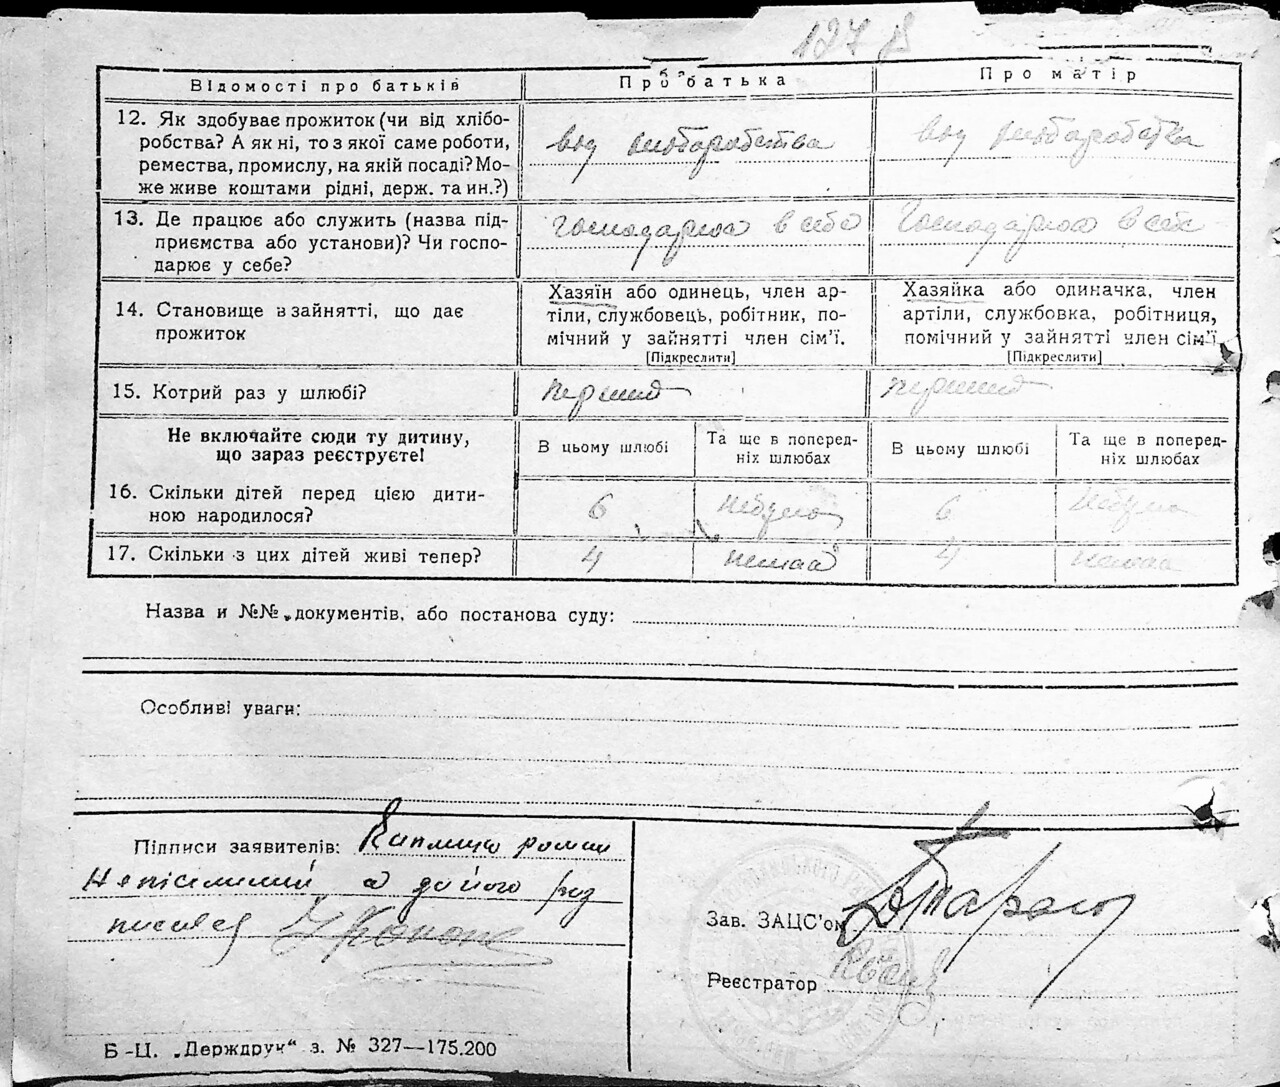 127 в
Відомості про батьків
Про батька
Про матір
12. Як здобуває прожиток (чи від хлібо-
робства? А як ні, то з якої саме роботи,
ремества, промислу, на якій посаді? Мо-
же живе коштами рідні, держ. та ин.?)
від хліборобства
від хліборобства
13. Де працює або служить (назва під-
приємства або установи)? Чи госпо-
дарює у себе?
Господарює в себе
Господарює в себе
14. Становище в зайнятті, що дає
прожиток
Хазяїн або одинець, член ар-
тіли, службовець, робітник, по-
мічний у зайнятті член сім'ї.
[Підкреслити]
Хазяйка або одиначка, член
артіли, службовка, робітниця,
помічний у зайнятті член сім'ї
[Підкреслити]
15. Котрий раз у шлюбі?
перший
перший
Не включайте сюди ту дитину,
що зараз реєструєте!
В цьому шлюбі
Та ще в поперед-
ніх шлюбах
В цьому шлюбі
Та ще в поперед-
ніх шлюбах
16. Скільки дітей перед цією дити-
ною народилося?
6
небуло
6
небуло
17. Скільки з цих дітей живі тепер?
4
немає
4
немає
Назва и №№ документів, або постанова суду:
Особливі уваги:
Підписи заявителів: роман
Неписьминий а за його роз
писався
Зав. ЗАЦС'ом
Реєстратор
Б-Ц. „Держдрук“ з. № 327—175.200